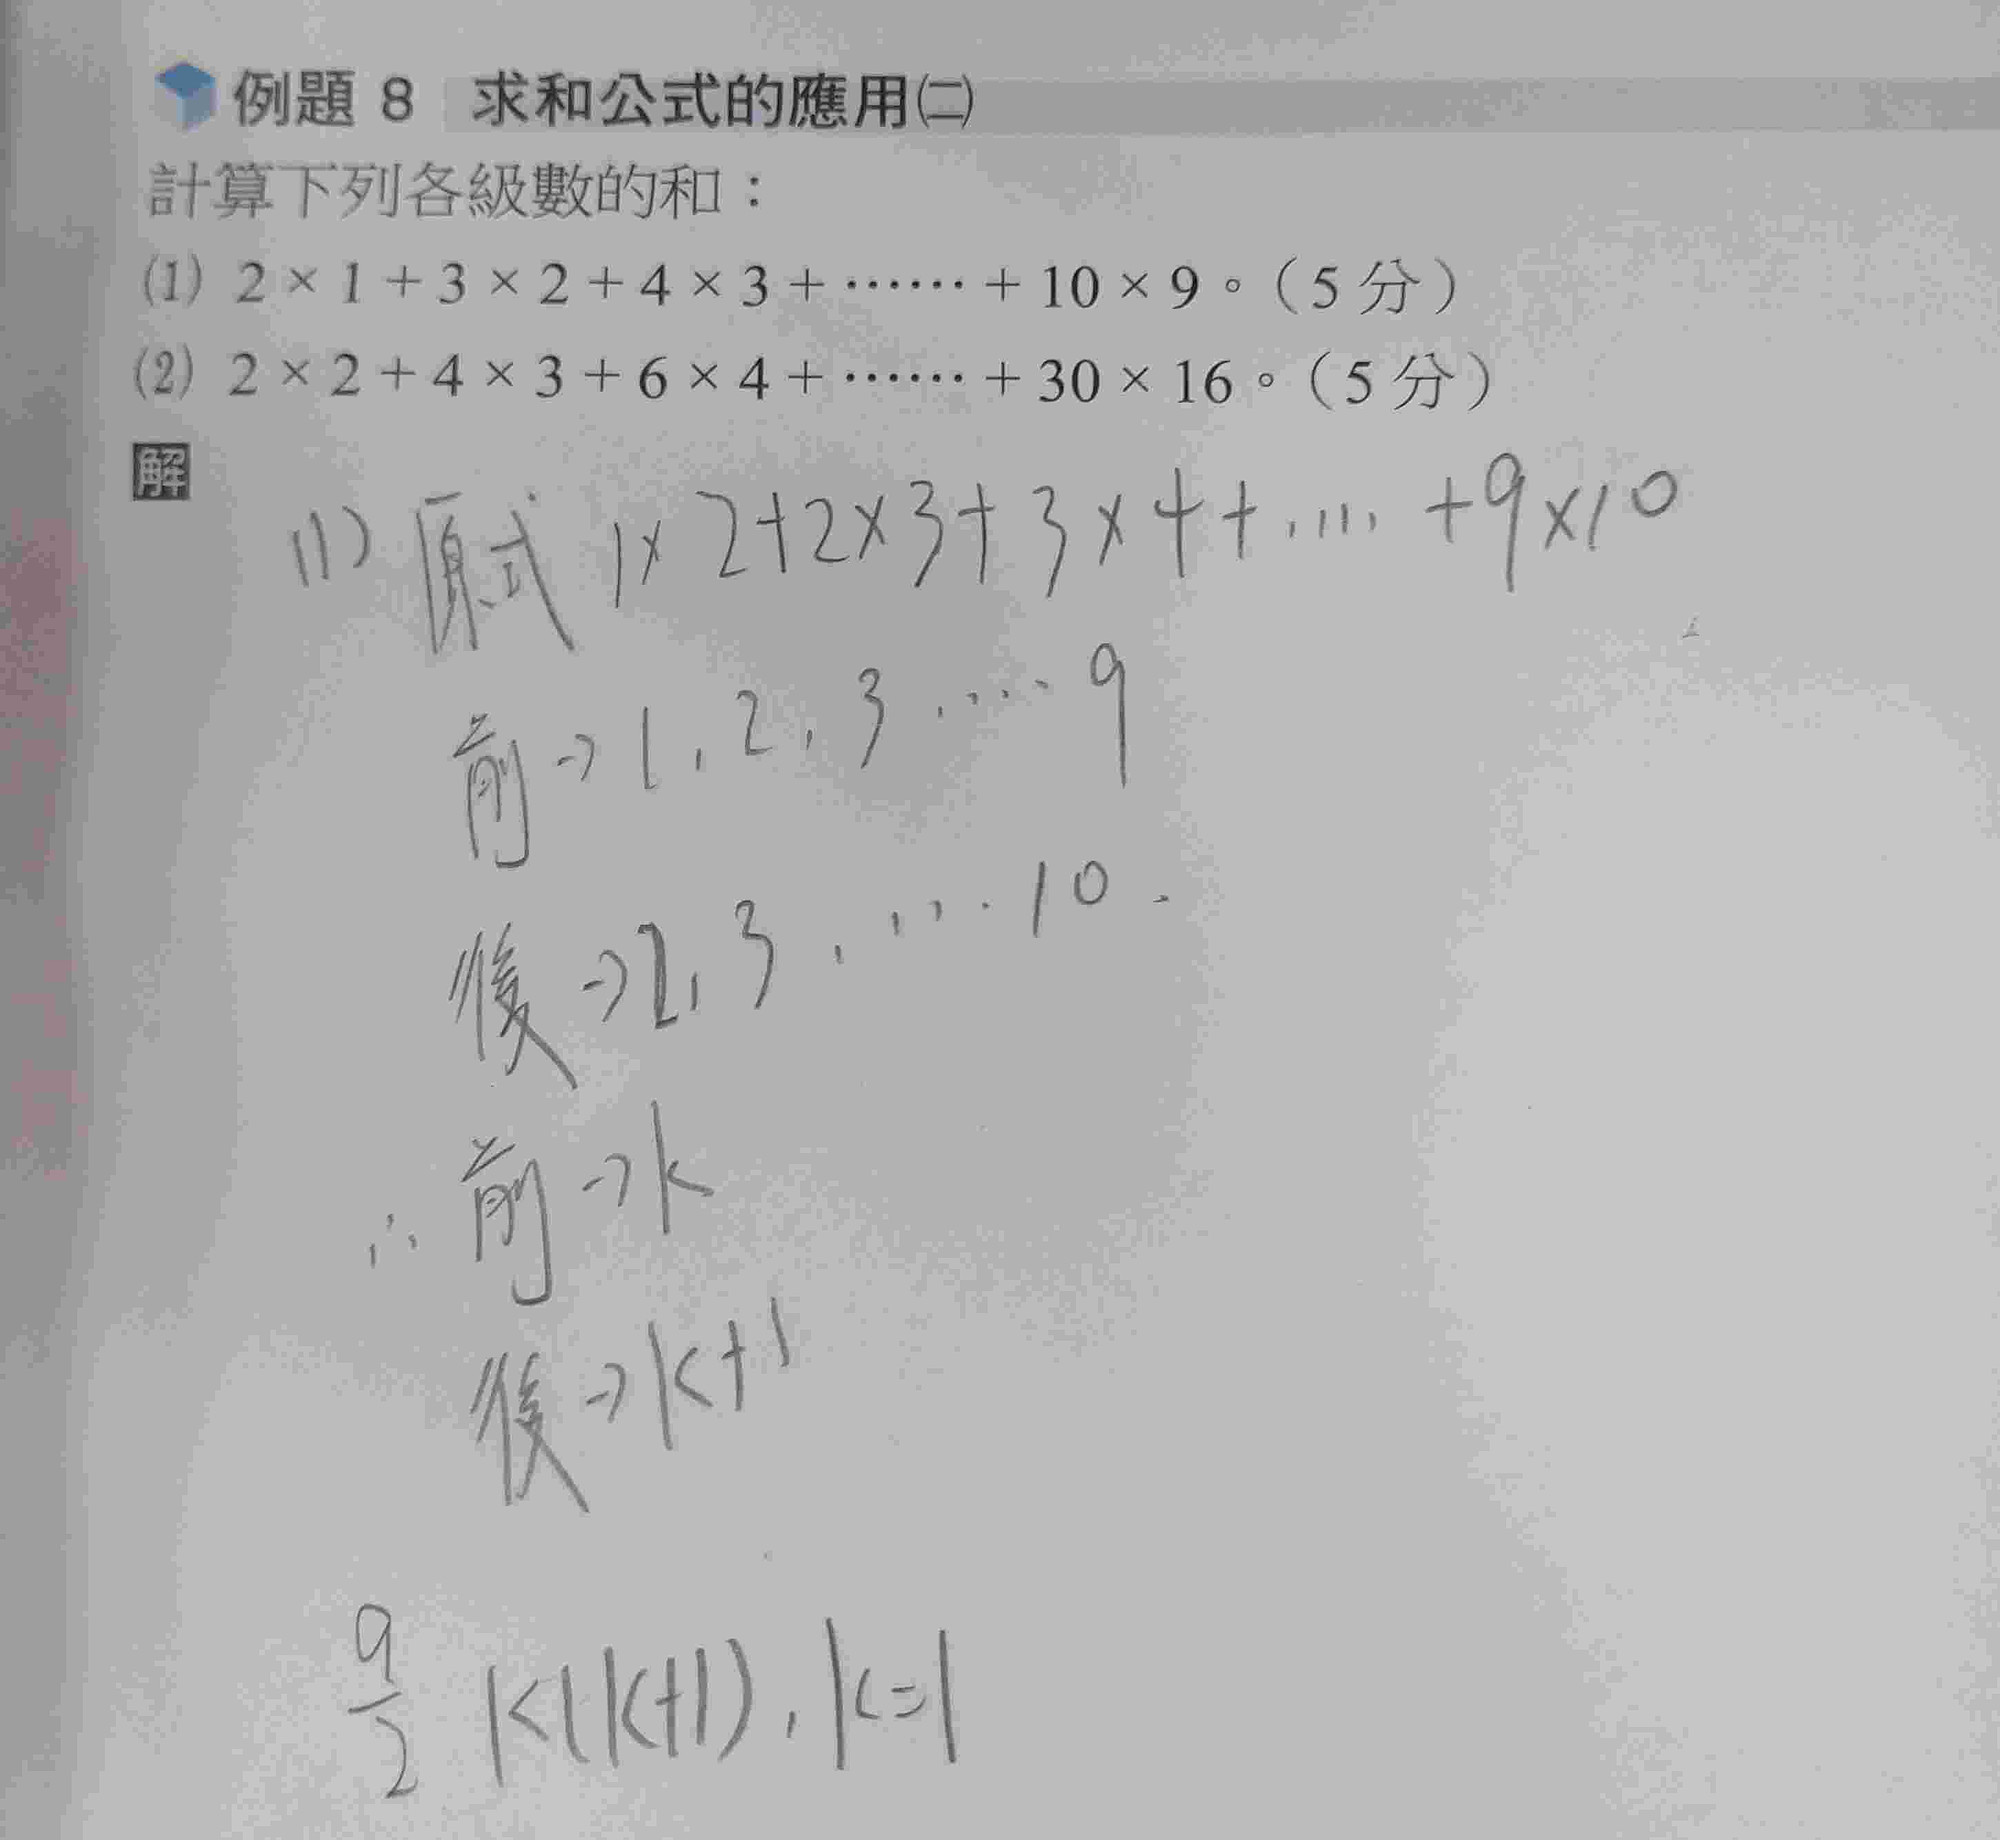 例題 8 求和公式的應用㈡
計算下列各級數的和：
(1) 2 × 1 + 3 × 2 + 4 × 3 + …… + 10 × 9。（5 分）
(2) 2 × 2 + 4 × 3 + 6 × 4 + …… + 30 × 16。（5 分）
解
(1) 原式 1×2+2×3+3×4+.....+9×10
前→1,2,3.....9
後→2,3,....10.
∴前→k
後→k+1
9/2 k(k+1),k=1